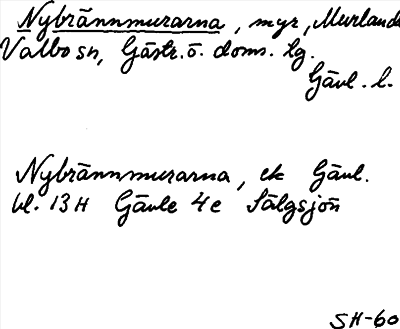 Nybrännmurarna, myr, Murlanda
Valbo sn, Gästr. ö. doms. lg.
Gävl. l.
Nybrännmurarna, ek Gävl.
bl. 13H Gävle 4e Sälgsjön
SH-60